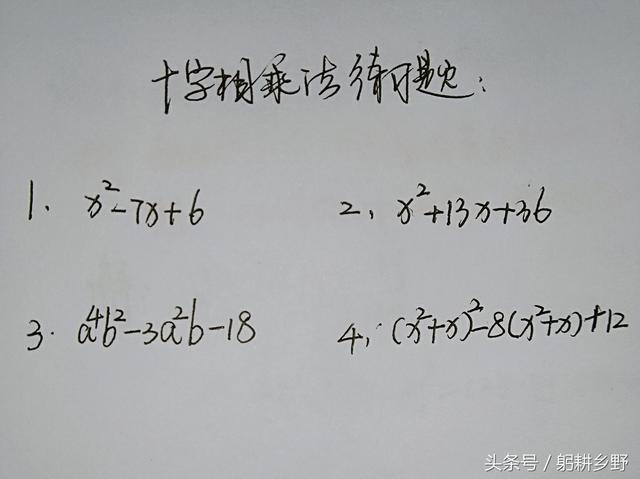 十字相乘法练习题:
1. x²-7x+6 2, x²+13x+36
3. a⁴b²-3a²b-18 4, (x²+x)²-8(x²+x)+12
头条号 / 躬耕乡野